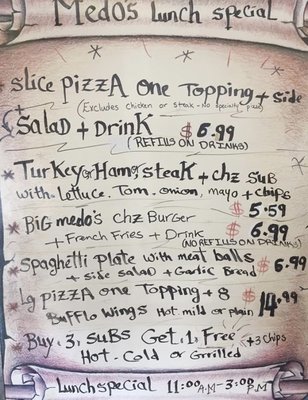 Medo's Lunch special
* Slice pizzA one Topping + side
(Excludes chicken or steak - No specialty pizza)
Salad + Drink $6.99
(REFILLS ON DRINKS)
* Turkey or Ham or steak + chz Sub
with. Lettuce. Tom. onion, mayo + chips
$5.59
* BiG medo's chz Burger $6.99
+ French Fries + Drink (NO REFILLS ON DRINKS)
* Spaghetti Plate with meat balls $6.99
+ side salad + Garlic Bread
* Lg pizzA one Topping + 8 $14.99
Bufflo Wings Hot mild or plain
* Buy. 3. SUBS Get. 1. Free +3 chips
Hot - Cold or Grrilled
Lunch special 11:00 AM - 3:00 PM